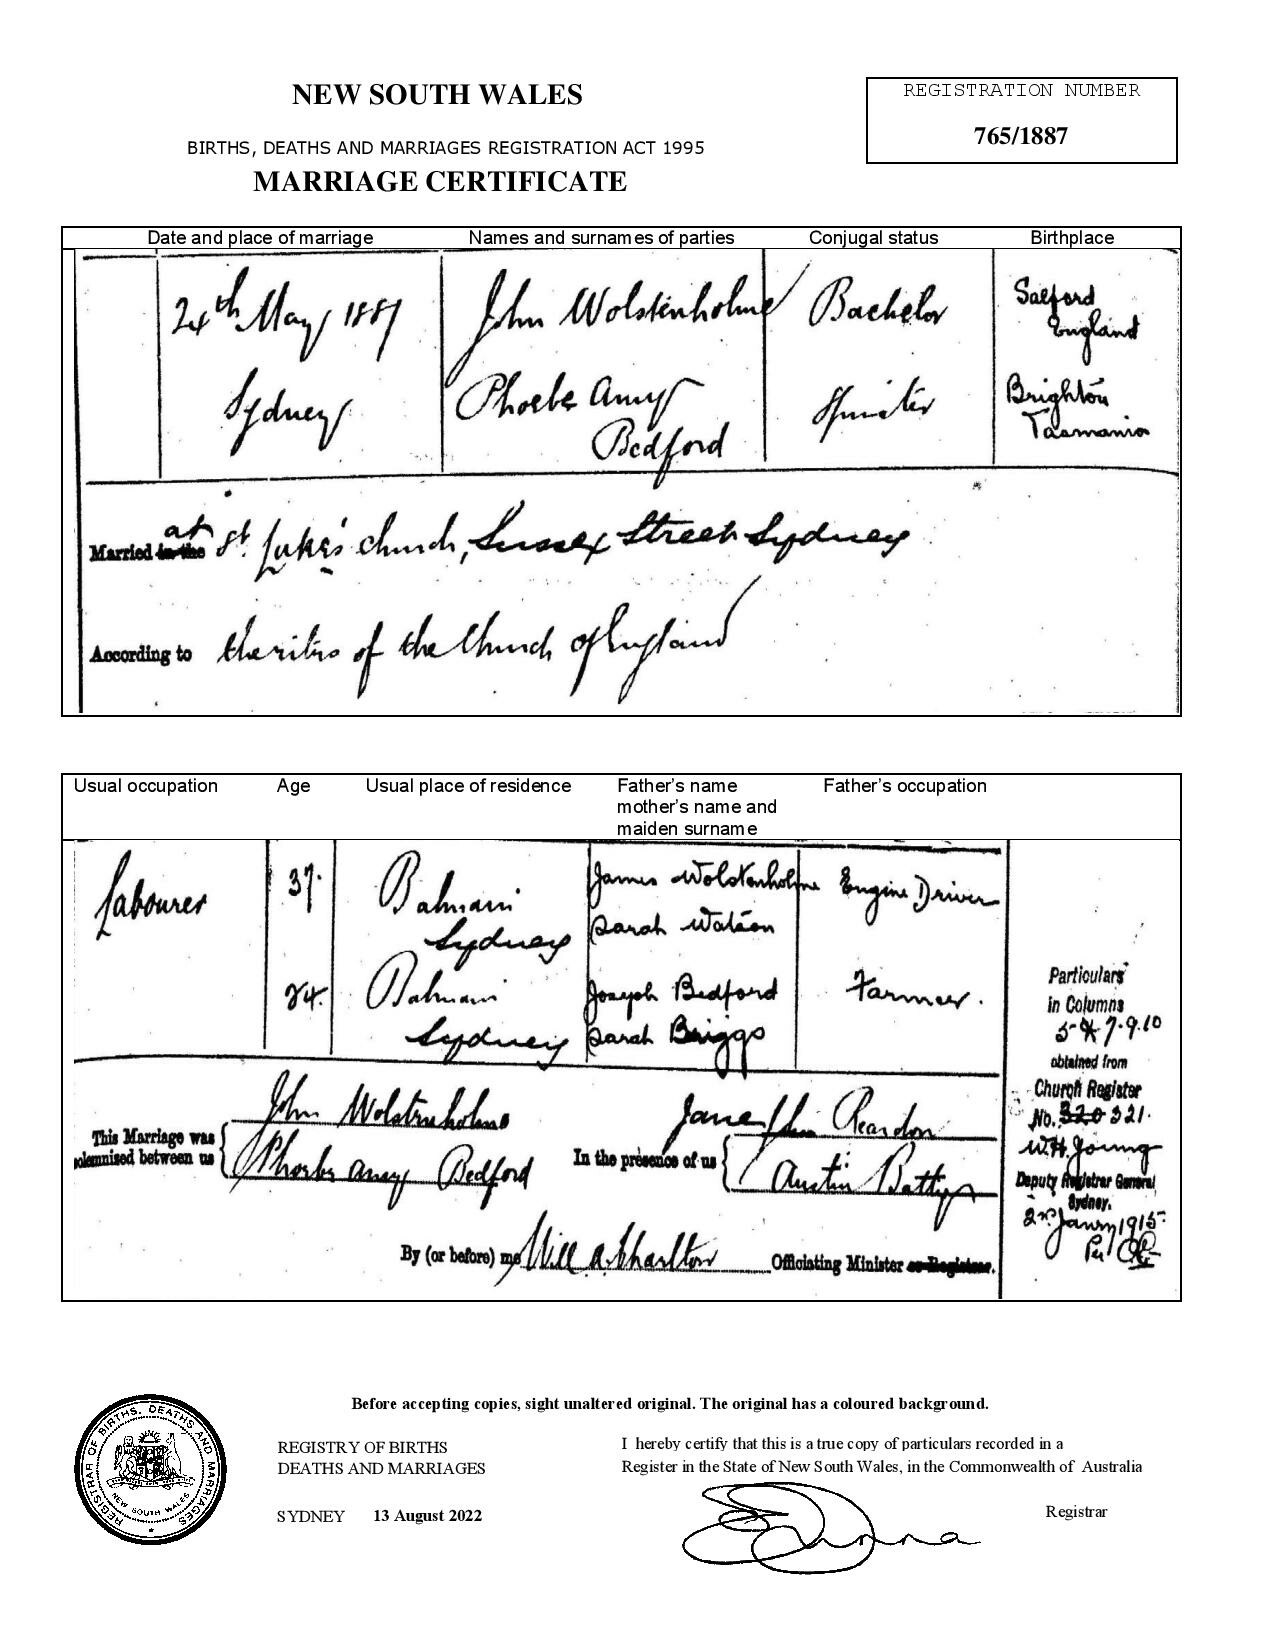 NEW SOUTH WALES
REGISTRATION NUMBER
765/1887
BIRTHS, DEATHS AND MARRIAGES REGISTRATION ACT 1995
MARRIAGE CERTIFICATE
Date and place of marriage Names and surnames of parties Conjugal status Birthplace
24th May 1887 John Wolstenholme Bachelor Salford
England
Sydney Phoebe Amy Spinster Brighton
Bedford Tasmania
at
Married in the St. Luke's church, Sussex Street Sydney
According to the rites of the Church of England
Usual occupation Age Usual place of residence Father's name Father's occupation
mother's name and
maiden surname
Labourer 37. Balmain James Wolstenholme Engine Driver
Sydney Sarah Watson
24. Balmain Joseph Bedford Farmer.
Sydney Sarah Briggs
Particulars
in Columns
7.9.10
obtained from
Church Register
No. 320 321.
W.H. Young
Deputy Registrar General
Sydney.
2nd Janry 1915
Per
John Wolstenholme
Phoebe Amy Bedford
This Marriage was
solemnised between us
Jane Reardon
Austin
In the presence of us
By (or before) me Will A Charlton Officiating Minister or Registrar.
Before accepting copies, sight unaltered original. The original has a coloured background.
REGISTRY OF BIRTHS
DEATHS AND MARRIAGES
SYDNEY 13 August 2022
I hereby certify that this is a true copy of particulars recorded in a
Register in the State of New South Wales, in the Commonwealth of Australia
Registrar
REGISTRAR OF BIRTHS, DEATHS AND MARRIAGES
NEW SOUTH WALES